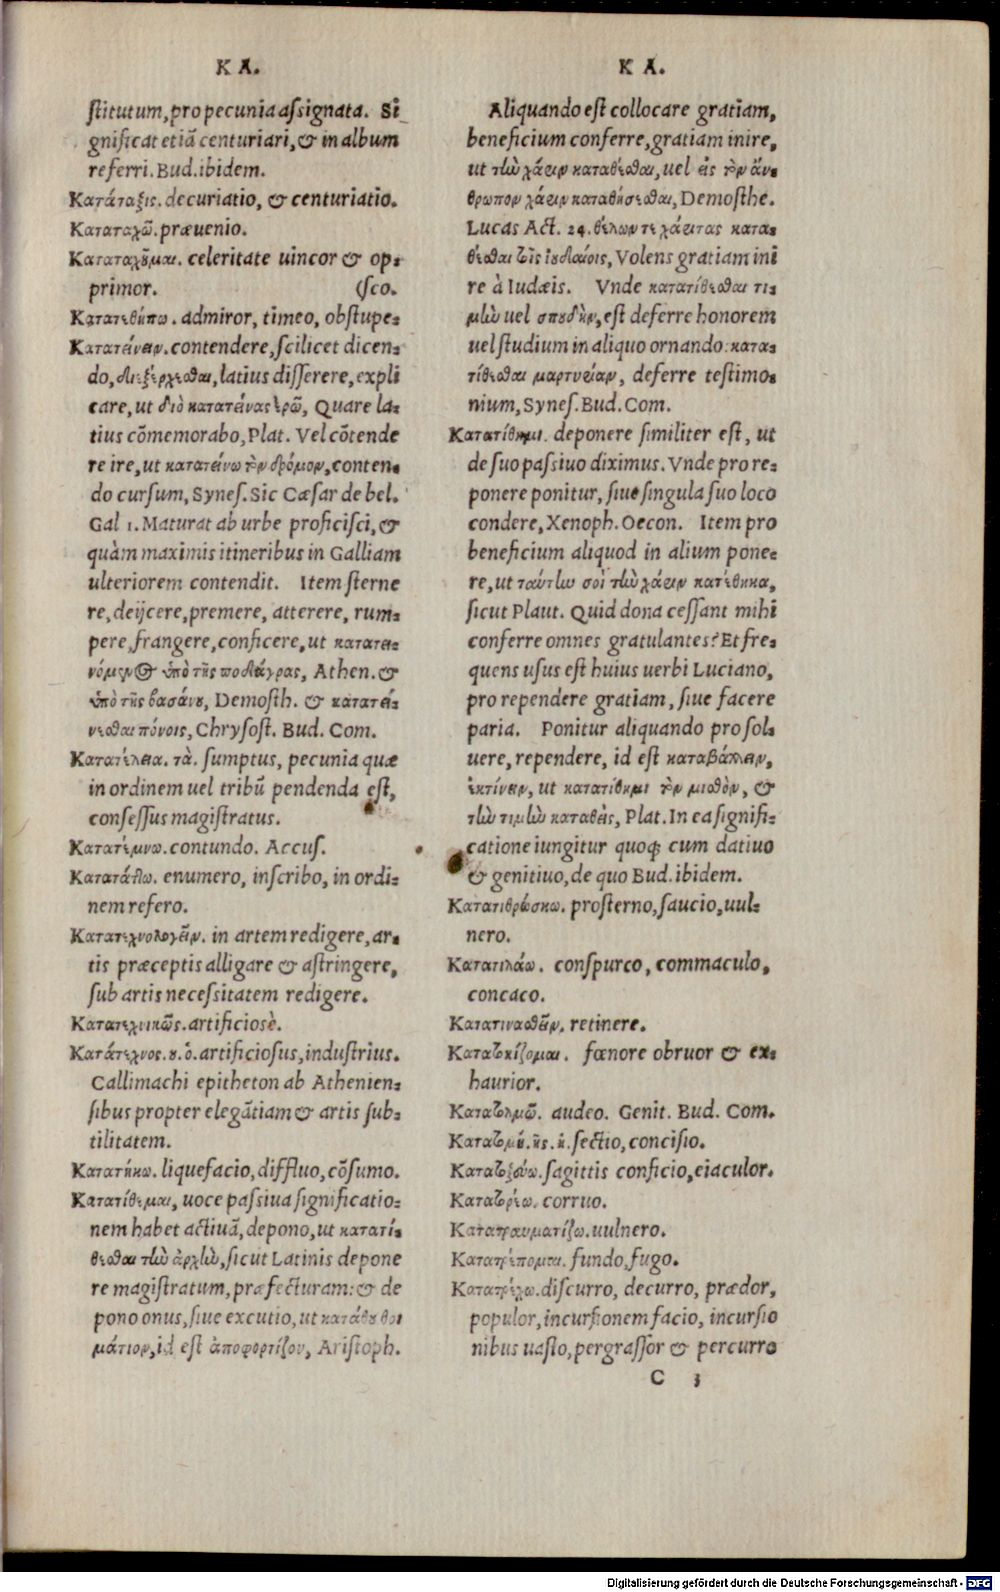 K A.
stitutum, pro pecunia assignata. Si_
gnificat etiã centuriari, & in album
referri. Bud. ibidem.
Κατάταξις. decuriatio, & centuriatio.
Καταταχῶ. prævenio.
Καταταχοῦμαι. celeritate uincor & op-
primor. (sco.
Κατατεθήπω. admiror, timeo, obstupe-
Κατατείνειν. contendere, scilicet dicen-
do, διεξέρχεσθαι, latius disserere, expli
care, ut διὸ κατατείνας ἐρῶ, Quare la-
tius cõmemorabo, Plat. Vel cõtende
re ire, ut κατατείνω τὸν δρόμον, conten-
do cursum, Synes. Sic Cæsar de bel.
Gal 1. Maturat ab urbe proficisci, &
quàm maximis itineribus in Galliam
ulteriorem contendit. Item sterne
re, deijcere, premere, atterere, rum-
pere, frangere, conficere, ut κατατει-
νόμενος ὑπὸ τῆς ποδάγρας, Athen. &
ὑπὸ τῆς βασάνου, Demosth. & κατατεί-
νεσθαι πόνοις, Chrysost. Bud. Com.
Κατατέλεια. τὰ. sumptus, pecunia quæ
in ordinem uel tribũ pendenda est,
consessus magistratus.
Κατατέμνω. contundo. Accus.
Κατατάττω. enumero, inscribo, in ordi-
nem refero.
Κατατεχνολογεῖν. in artem redigere, ar-
tis præceptis alligare & astringere,
sub artis necessitatem redigere.
Κατατεχνικῶς. artificiosè.
Κατάτεχνος. ου. ὁ. artificiosus, industrius.
Callimachi epitheton ab Athenien-
sibus propter elegãtiam & artis sub-
tilitatem.
Κατατήκω. liquefacio, diffluo, cõsumo.
Κατατίθεμαι, uoce passiua significatio-
nem habet actiuã, depono, ut κατατί-
θεσθαι τὴν ἀρχὴν, sicut Latinis depone
re magistratum, præfecturam: & de
pono onus, siue excutio, ut κατάθου θοι
μάτιον, id est ἀποφορτίζου, Aristoph.
K A.
Aliquando est collocare gratiam,
beneficium conferre, gratiam inire,
ut τὴν χάριν καταθέσθαι, uel εἰς τὸν ἄν-
θρωπον χάριν καταθήσεσθαι, Demosthe.
Lucas Act. 24. θέλων τε χάριτας κατα-
θέσθαι τοῖς ἰουδαίοις, Volens gratiam ini
re à Iudæis. Vnde κατατίθεσθαι τι-
μὴν uel σπουδὴν, est deferre honorem
uel studium in aliquo ornando: κατα-
τίθεσθαι μαρτυρίαν, deferre testimo-
nium, Synes. Bud. Com.
Κατατίθημι. deponere similiter est, ut
de suo passiuo diximus. Vnde pro re-
ponere ponitur, siue singula suo loco
condere, Xenoph. Oecon. Item pro
beneficium aliquod in alium pone-
re, ut ταύτην σοὶ τὴν χάριν κατέθηκα,
sicut Plaut. Quid dona cessant mihi
conferre omnes gratulantes? Et fre-
quens usus est huius uerbi Luciano,
pro rependere gratiam, siue facere
paria. Ponitur aliquando pro sol-
uere, rependere, id est καταβάλλειν,
ἐκτίνειν, ut κατατίθημι τὸν μισθὸν, &
τὴν τιμὴν καταθεὶς, Plat. In ea signifi-
catione iungitur quoq; cum datiuo
& genitiuo, de quo Bud. ibidem.
Κατατιθρώσκω. prosterno, saucio, uul-
nero.
Κατατιλάω. conspurco, commaculo,
concaco.
Κατατιναοθεῖν. retinere.
Κατατοκίζομαι. fœnore obruor & ex-
haurior.
Κατατολμῶ. audeo. Genit. Bud. Com.
Κατατομή. ῆς. ἡ. sectio, concisio.
Κατατοξεύω. sagittis conficio, eiaculor.
Κατατορέω. corruo.
Κατατραυματίζω. uulnero.
Κατατρέπομαι. fundo, fugo.
Κατατρέχω. discurro, decurro, prædor,
populor, incursionem facio, incursio
nibus uasto, pergrassor & percurro
C 3
Digitalisierung gefördert durch die Deutsche Forschungsgemeinschaft - DFG